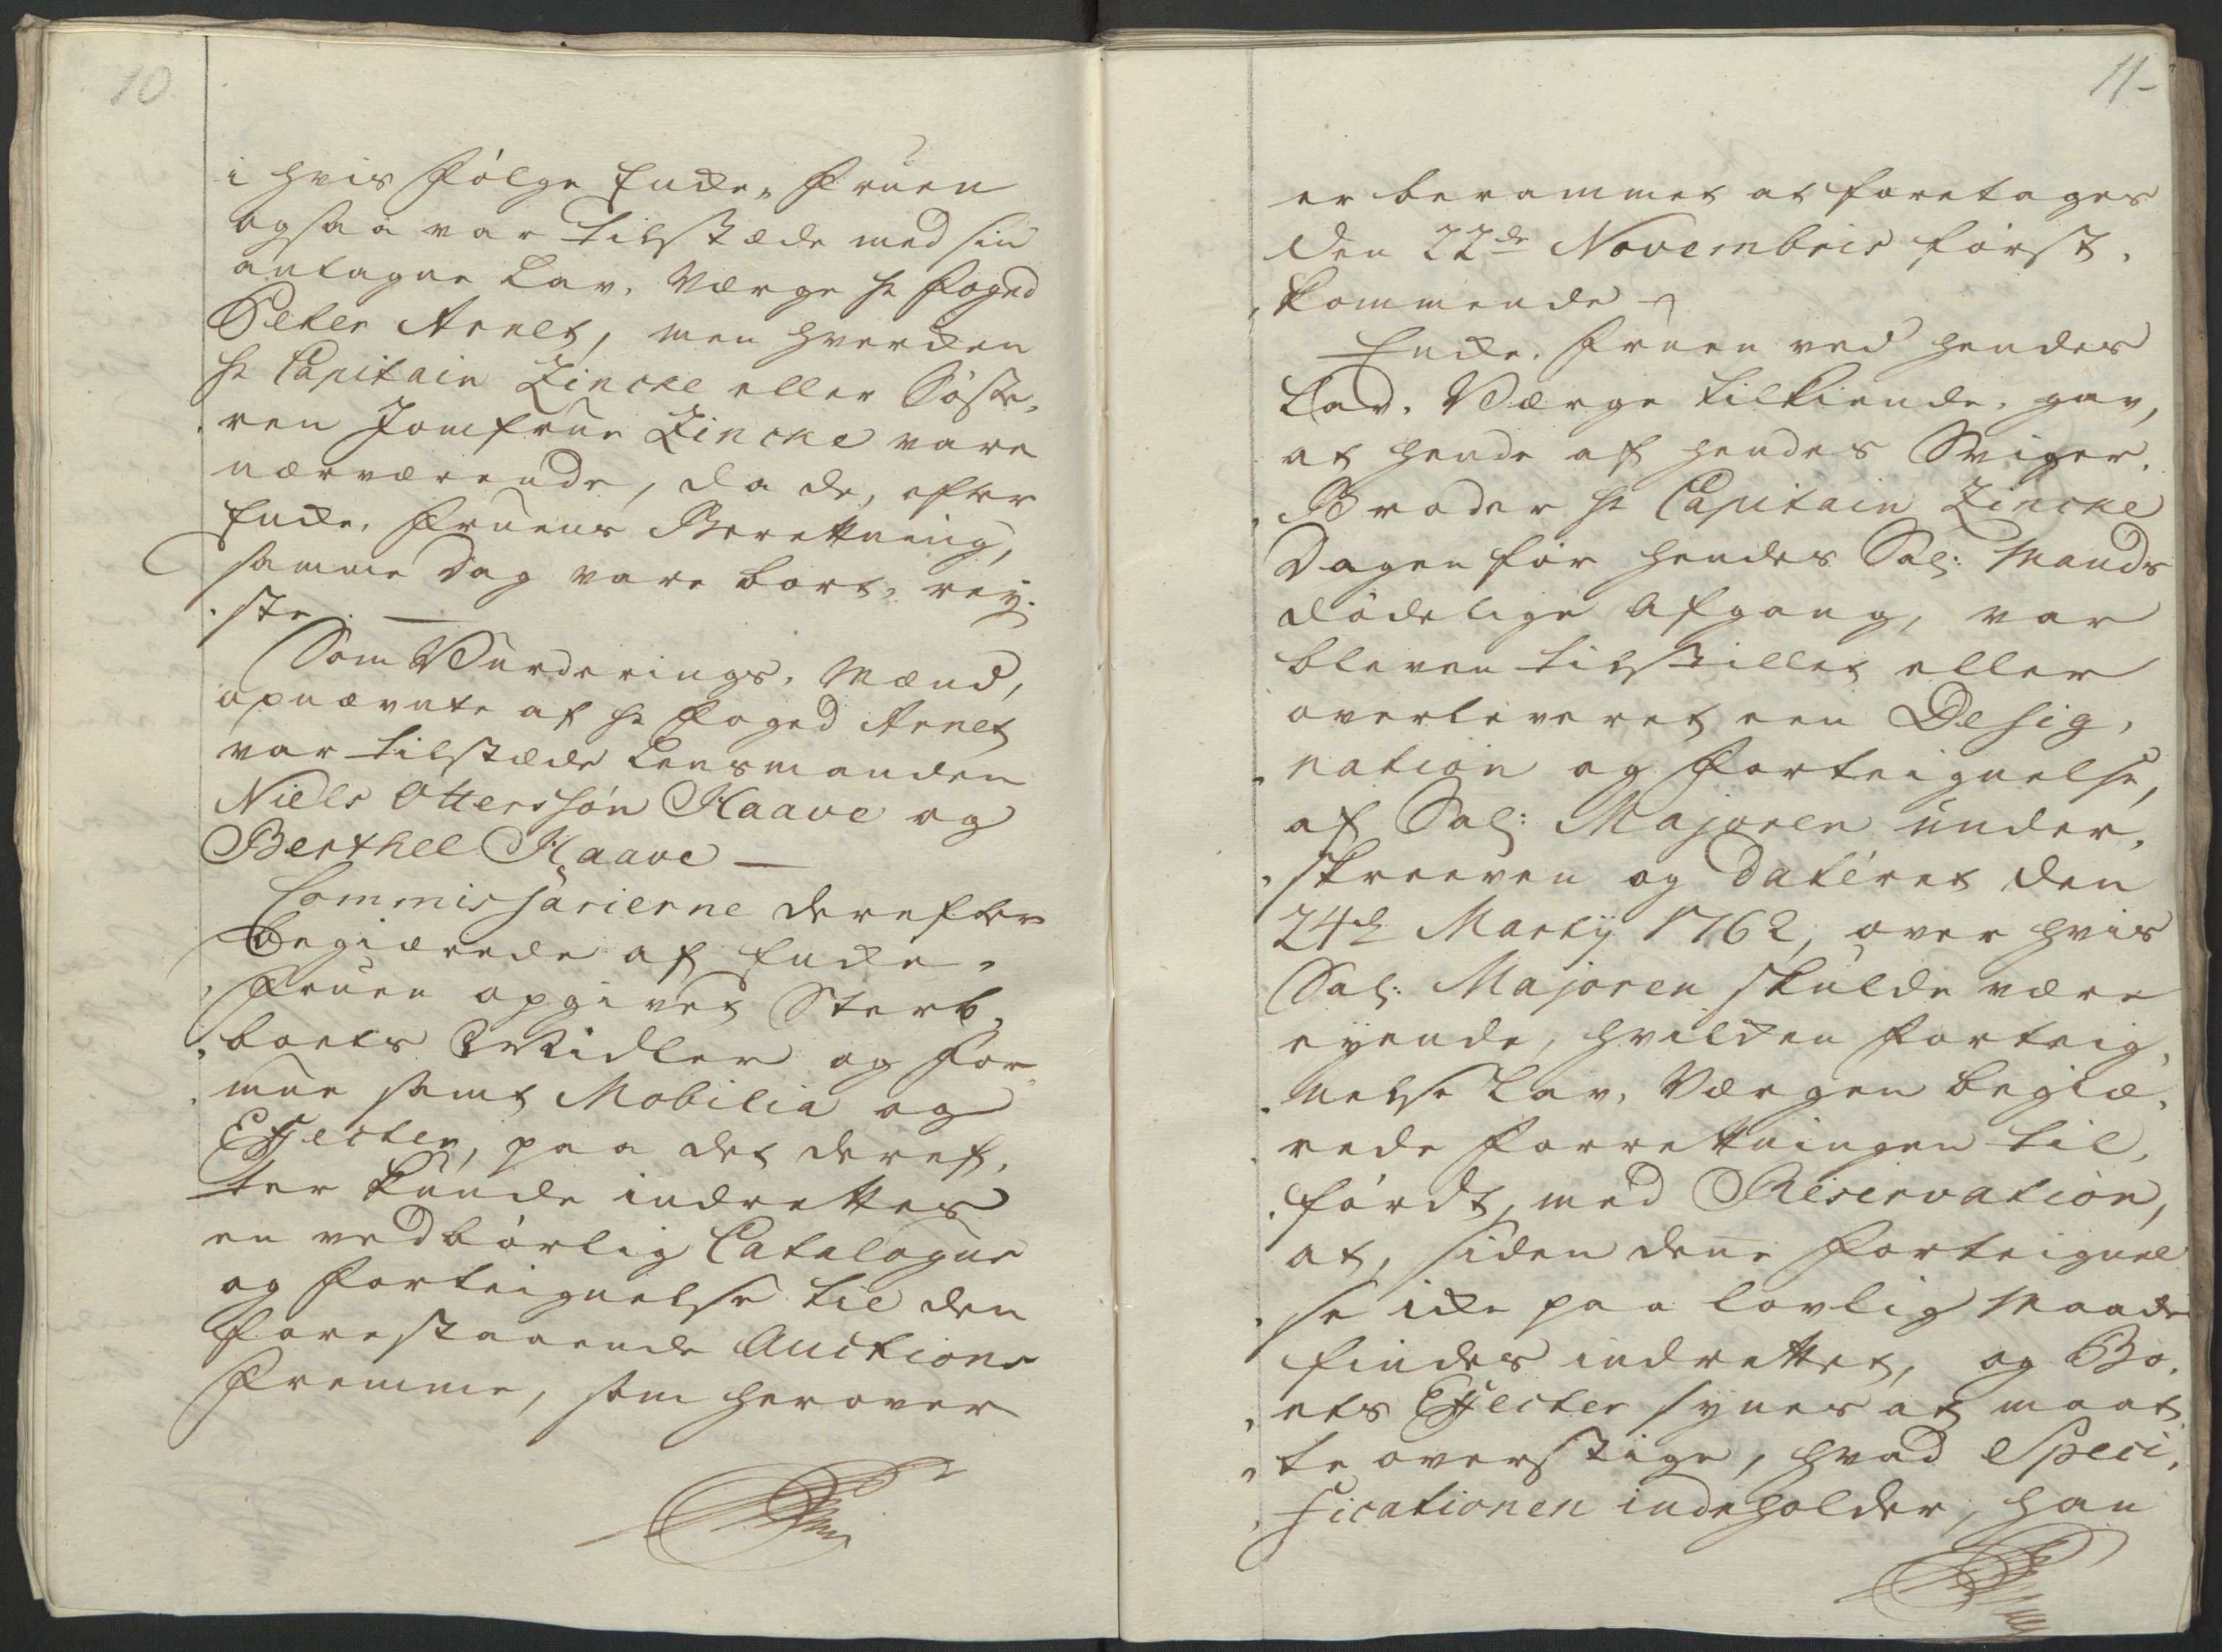 10
i hvis Følge Encke-Fruen
ogsaa var tilstæde med sin
antagne Lav-Værge Hr Foged
Peter Arnet, men hverken
Hr Capitain Zincke eller Søste-
ren Jomfrue Zincke vare
nærværende, da de, efter
Encke-Fruens Berettning,
samme Dag vare bort-rey-
ste. —
Som Vurderings-Mænd,
opnævnte af Hr Foged Arnet
var tilstæde Lensmanden
Niels Ottersøn Haave og
Berthel Haave —
Commissarierne derefter
begiærede af Encke-
Fruen opgivet Sterb-
boets Midler og For-
mue samt Mobilia og
Effecter, paa det deref-
ter kunde indrettes
en vedbørlig Catalogue
og Forteignelse til den
forestaaende Auctions
Fremme, som herover
11-
er berammet at foretages
den 22de Novembris først-
kommende
Encke-Fruen ved hendes
Lav-Værge tilkiende-gav,
at hende af hendes Sviger-
Broder Hr Capitain Zincke
Dagen før hendes Sal: Mands
dødelige Afgang, var
bleven tilstillet eller
overleveret een Desig-
nation og Forteignelse,
af Sal: Majoren under-
skreven og dateret den
24de Martij 1762, over hvis
Sal: Majoren skulde være
eyende, hvilken Forteig-
nelse Lav-Værgen begiæ-
rede Forrettningen til-
førdt, med Reservation,
at, siden denne Forteignel-
se icke paa lovlig Maade
findes indrettet, og Bo-
ets Effecter synes at maat-
te overstige, hvad Speci-
ficationen indeholder, han